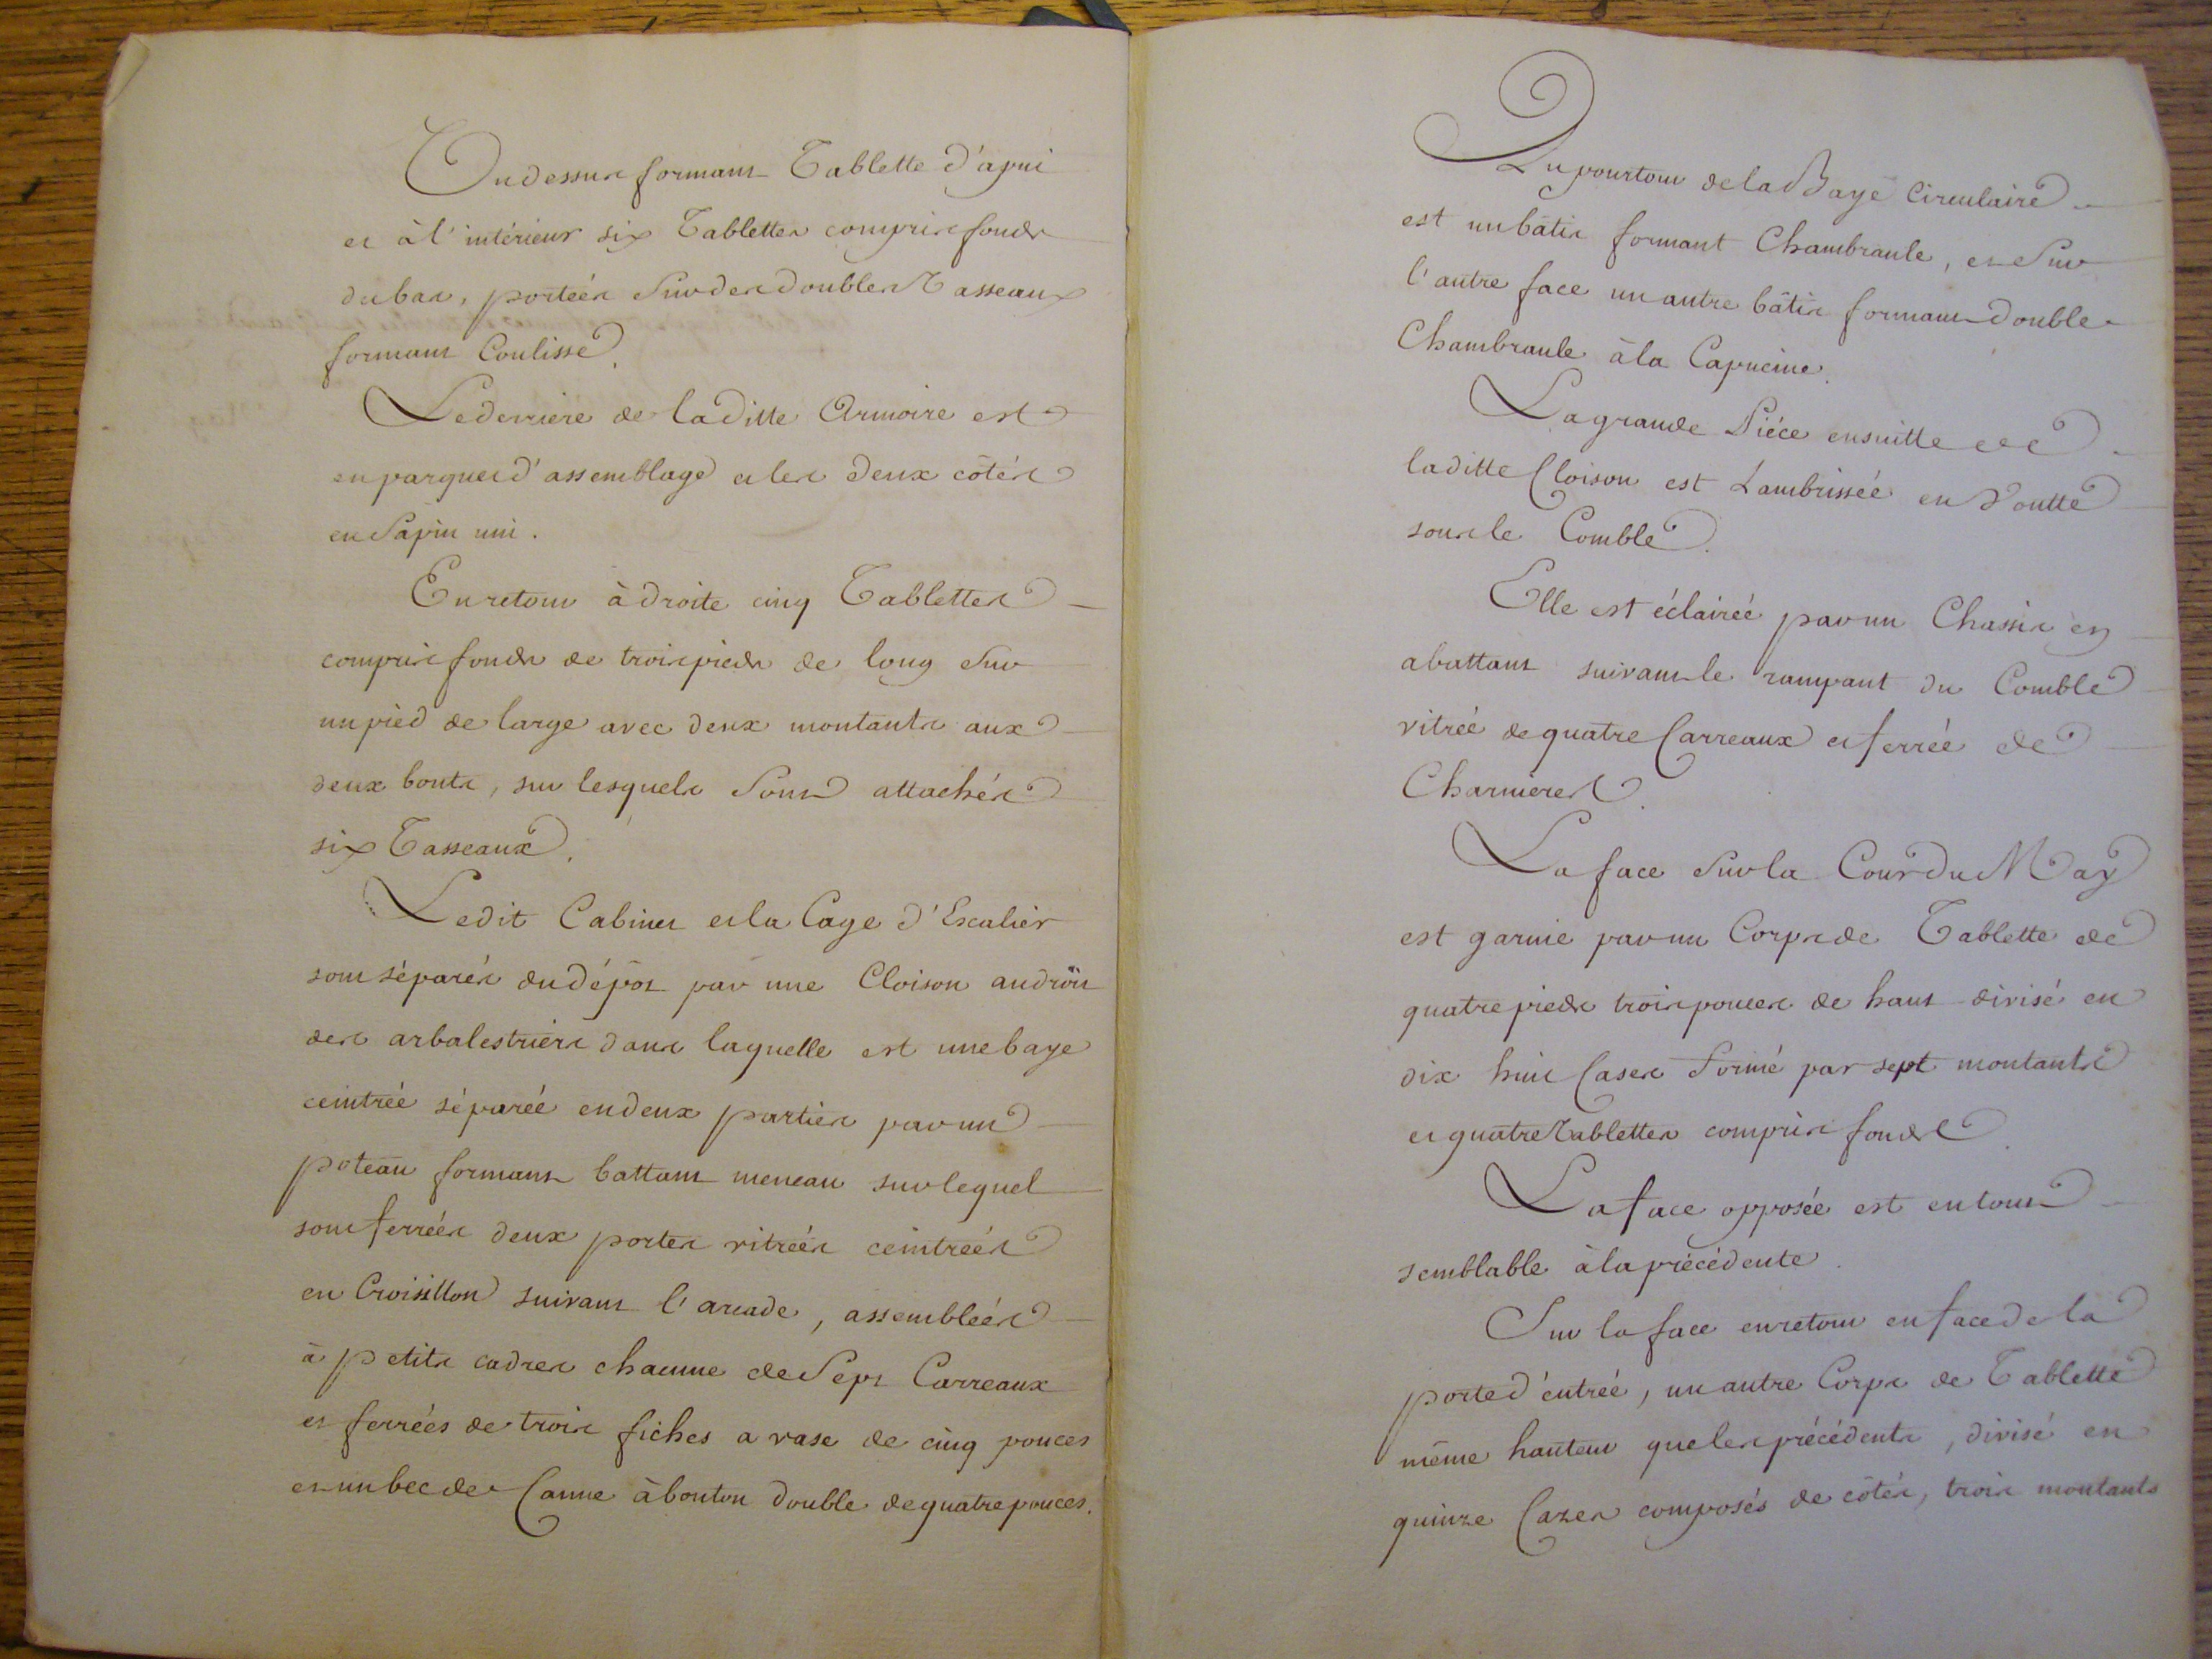 Un dessus formant Tablette d'apui
et à l'intérieur six Tablettes compris fonds
du bas, portées sur des doubles Tasseaux
formant Coulisse.
Le derriere de la ditte Armoire est
en parquet d'assemblage et les deux côtés
en Sapin uni.
En retour à droite cinq Tablettes
compris fonds de trois pieds de long sur
un pied de large avec deux montants aux
deux bouts, sur lesquels sont attachés
six Tasseaux.
Ledit Cabinet et la Cage d'Escalier
sont séparés du dépôt par une Cloison au droit
des arbalestriers dans laquelle est une baye
ceintrée séparée en deux parties par un
poteau formant battant meneau sur lequel
sont ferrées deux portes vitrées ceintrées
en Croisillon suivant l'arcade, assemblées
à petits cadres chacune de Sept Carreaux
et ferrées de trois fiches a vase de cinq pouces
et un bec de Canne à bouton double de quatre pouces.
Au pourtour de la Baye Circulaire
est un bâtis formant Chambranle, et sur
l'autre face un autre bâtis formant double
Chambranle à la Capucine.
La grande Piéce ensuitte de
la ditte Cloison est Lambrissée en Voutte
sous le Comble.
Elle est éclairée par un Chassis en
abattant suivant le rampant du Comble
vitrée de quatre Carreaux et ferrée de
Charnieres.
La face sur la Cour du May
est garnie par un Corps de Tablette de
quatre pieds trois pouces de haut divisé en
dix huit Cases formé par sept montants
et quatre Tablettes compris fonds.
La face opposée est en tout
semblable à la précédente.
Sur la face en retour en face de la
porte d'entrée, un autre Corps de Tablette
même hauteur que les précédents, divisé en
quinze Cazes composés de côtés, trois montants